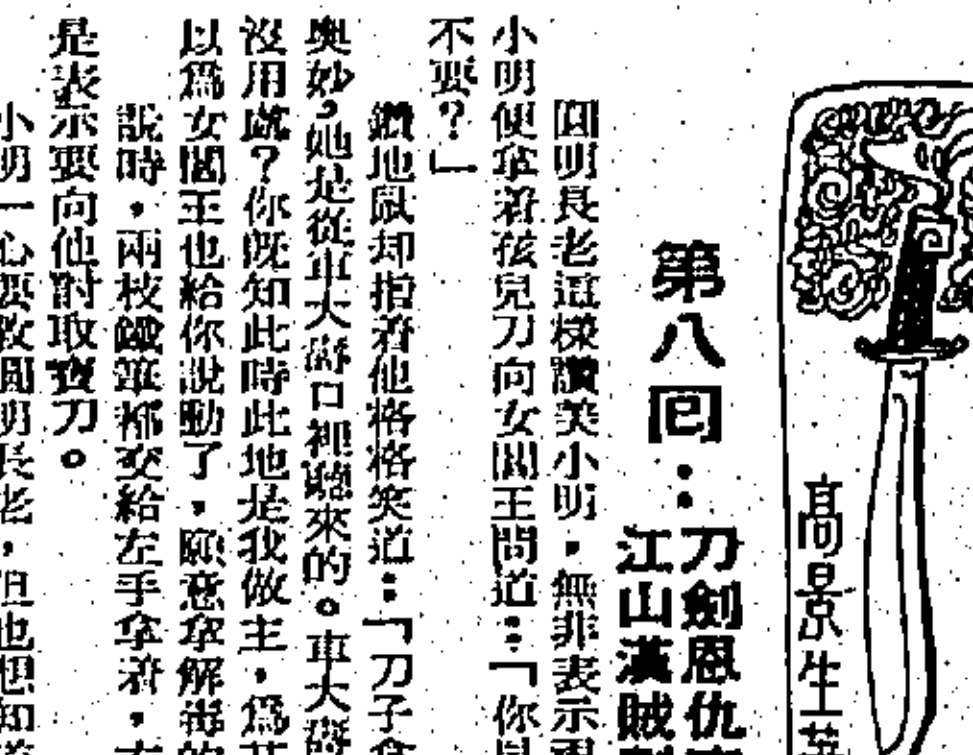 高景生
第八回：
刀劍恩仇
江山漢賊
圓明長老這樣讚美小明，無非表示
小明便拿着孩兒刀向女閻王問道：「你
不要？」
鑽地鼠却指着他格格笑道：「刀子
奥妙，她是從車大爺口裡聽來的。車大爺
沒用處？你既知此時此地是我做主，爲
以爲女閻王也給你說動了，願意拿解毒的
說時，兩枝鐵筆都交給左手拿着，
是表示要向他討取寶刀。
小明一心要救圓明長老，但也想知道